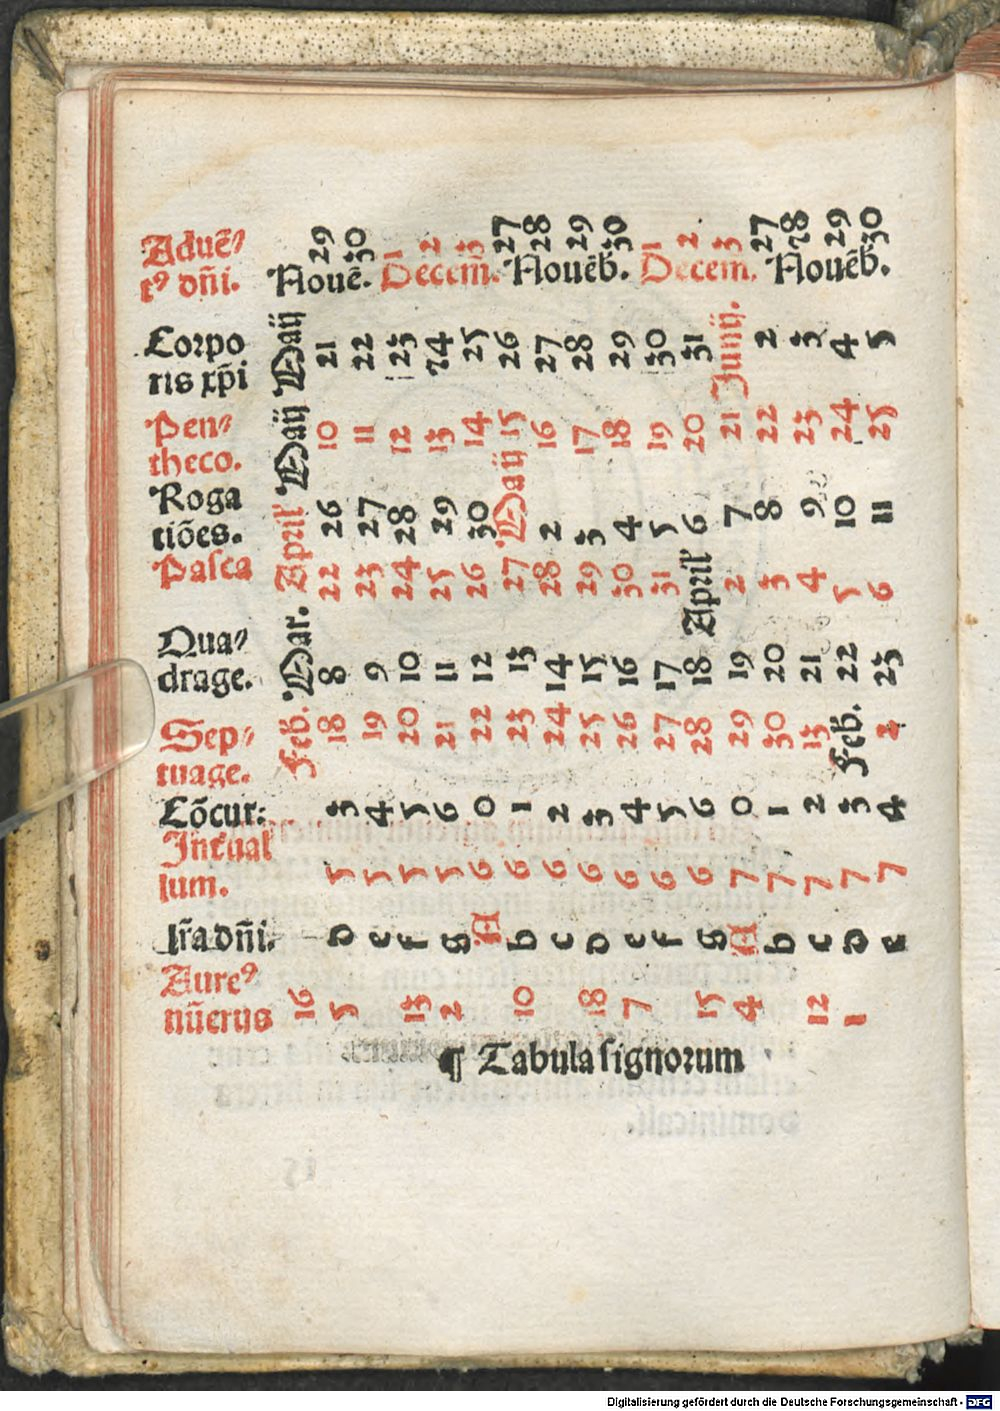 Aduē⸗
tꝰ dñi.
29 30 1 2 3 27 28 29 30 1 2 3 27 78 29 30
Nouē. Decem̄. Nouēb. Decem. Nouēb.
Corpo
ris xp̄i
Maij 21 22 23 74 25 26 27 28 29 30 31 Junij. 2 3 4 5
Pen⸗
theco.
Maij 10 11 12 13 14 15 16 17 18 19 20 21 22 23 24 25
Roga
tiões.
April 26 27 28 29 30 Maij 2 3 4 5 6 7 8 9 10 11
Pasca
22 23 24 25 26 27 28 29 30 31 April 2 3 4 5 6
Qua⸗
drage.
Mar. 8 9 10 11 12 13 14 15 16 17 18 19 20 21 22 23
Sep⸗
tuage.
Feb. 18 19 20 21 22 23 24 25 26 27 28 29 30 13 Feb. 2
Cõcur:
3 4 5 6 0 1 2 3 4 5 6 0 1 2 3 4
Interual
lum.
5 5 5 5 6 6 6 6 6 6 6 7 7 7 7 7
lr̃a dñi.
d e f g A b c d e f g A b c d e
Aureꝰ
nūerus
16 5 13 2 10 18 7 15 4 12 1
¶ Tabula signorum
Digitalisierung gefördert durch die Deutsche Forschungsgemeinschaft - DFG